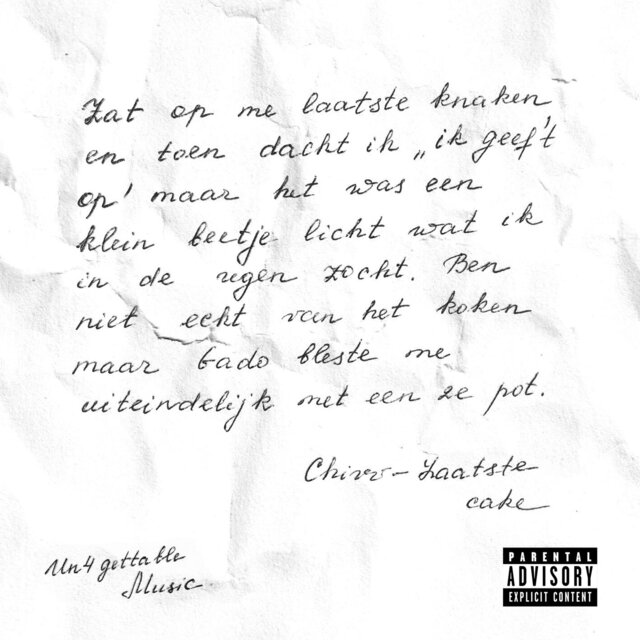 Zat op me laatste knaken
en toen dacht ik „ik geef't
op' maar het was een
klein beetje licht wat ik
in de regen zocht. Ben
niet echt van het koken
maar Gado bleste me
uiteindelijk met een 2e pot.
Chivv - Laatste
cake
Un4gettable
Music
PARENTAL
ADVISORY
EXPLICIT CONTENT